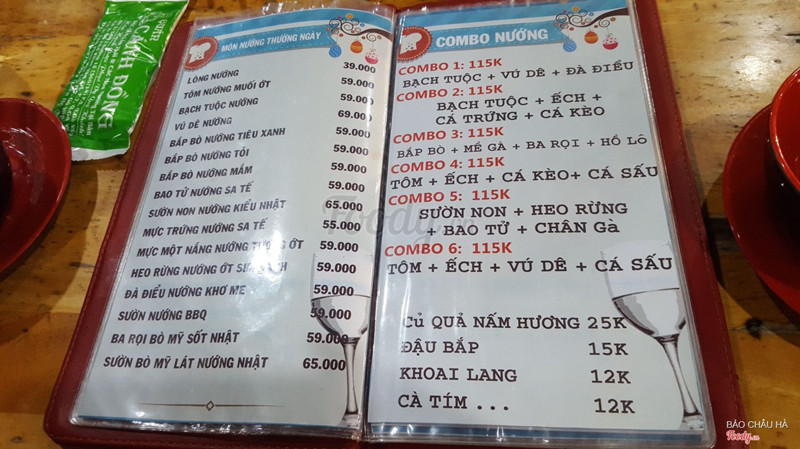 CÁNH ĐỒNG
MÓN NƯỚNG THƯỜNG NGÀY
LÒNG NƯỚNG 39.000
TÔM NƯỚNG MUỐI ỚT 59.000
BẠCH TUỘC NƯỚNG 59.000
VÚ DÊ NƯỚNG 69.000
BẮP BÒ NƯỚNG TIÊU XANH 59.000
BẮP BÒ NƯỚNG TỎI 59.000
BẮP BÒ NƯỚNG MẮM 59.000
BAO TỬ NƯỚNG SA TẾ 59.000
SƯỜN NON NƯỚNG KIỂU NHẬT 65.000
MỰC TRỨNG NƯỚNG SA TẾ 55.000
MỰC MỘT NẮNG NƯỚNG TƯƠNG ỚT 59.000
HEO RỪNG NƯỚNG ỚT 59.000
ĐÀ ĐIỂU NƯỚNG KHO ME 59.000
SƯỜN NƯỚNG BBQ 59.000
BA RỌI BÒ MỸ SỐT NHẬT 59.000
SƯỜN BÒ MỸ LÁT NƯỚNG NHẬT 65.000
COMBO NƯỚNG
COMBO 1: 115K
BẠCH TUỘC + VÚ DÊ + ĐÀ ĐIỂU
COMBO 2: 115K
BẠCH TUỘC + ẾCH +
CÁ TRỨNG + CÁ KÈO
COMBO 3: 115K
BẮP BÒ + MỀ GÀ + BA RỌI + HỒ LÔ
COMBO 4: 115K
TÔM + ẾCH + CÁ KÈO+ CÁ SẤU
COMBO 5: 115K
SƯỜN NON + HEO RỪNG
+ BAO TỬ + CHÂN Gà
COMBO 6: 115K
TÔM + ẾCH + VÚ DÊ + CÁ SẤU
Củ QUẢ NẤM HƯƠNG 25K
ĐẬU BẮP 15K
KHOAI LANG 12K
CÀ TÍM ... 12K
Foody.vn
BẢO CHÂU HÀ
Foody.vn